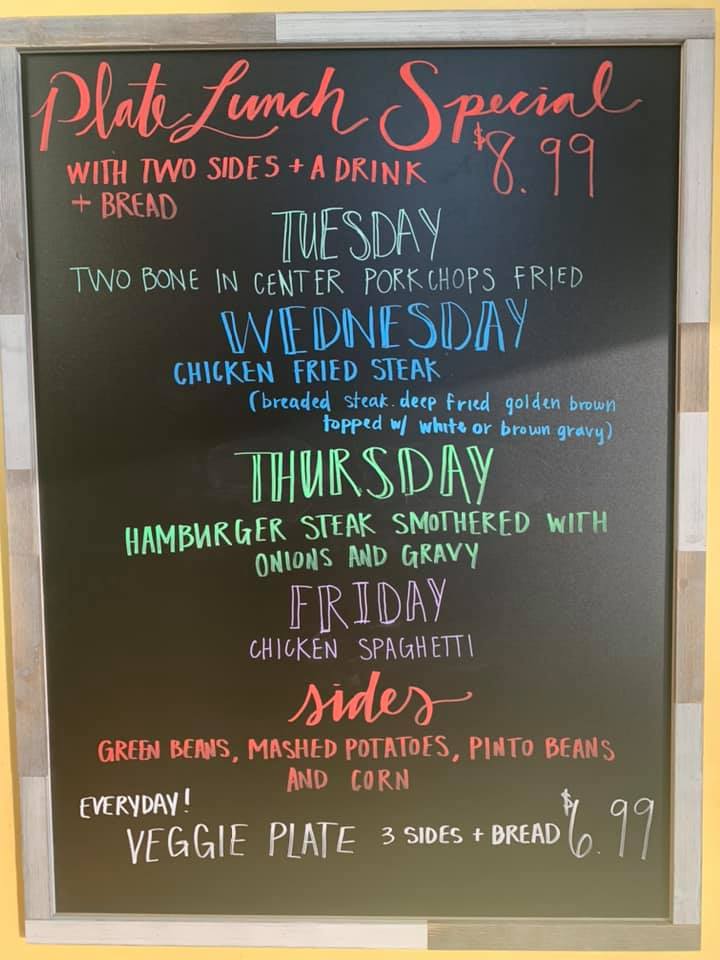 Plate Lunch Special
WITH TWO SIDES + A DRINK $8.99
+ BREAD
TUESDAY
TWO BONE IN CENTER PORKCHOPS FRIED
WEDNESDAY
CHICKEN FRIED STEAK
(breaded steak. deep fried golden brown
topped w/ white or brown gravy)
THURSDAY
HAMBURGER STEAK SMOTHERED WITH
ONIONS AND GRAVY
FRIDAY
CHICKEN SPAGHETTI
sides
GREEN BEANS, MASHED POTATOES, PINTO BEANS
AND CORN
EVERYDAY!
VEGGIE PLATE 3 SIDES + BREAD $6.99